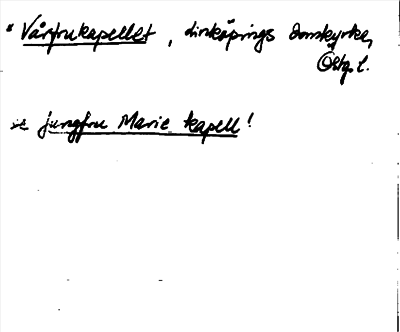 "Vårfrukapellet, Linköpings domkyrka,
Östg. l.
se Jungfru Marie kapell!